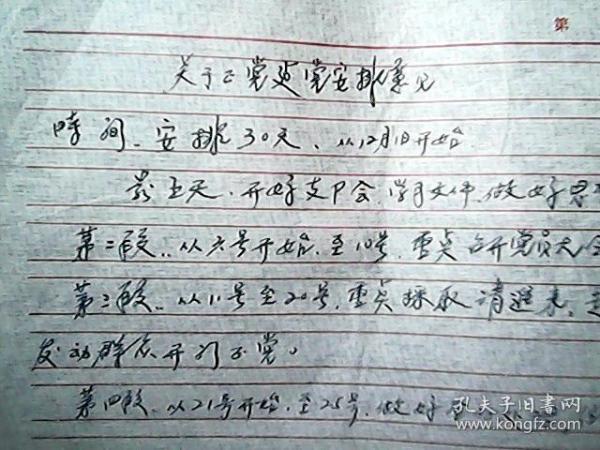 第
关于正党建党安排意见
时间、安排30天、从12月1日开始
前五天、开好支部会、学习文件、做好思
第二段:从六号开始、至10号、重点召开党员大会
第三段:从11号至20号、重点採取请进来、走
发动群众开门正党。
第四段、从21号开始、至25号、做好
孔夫子旧书网
www.kongfz.com